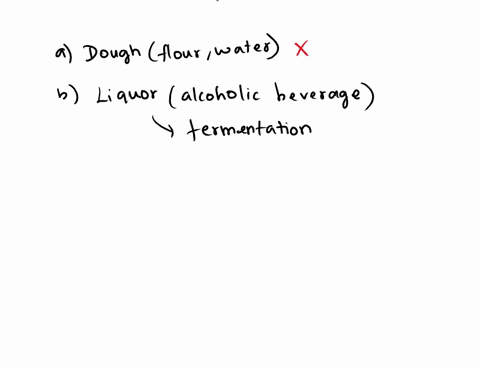 a) Dough (flour, water) X
b) Liquor (alcoholic beverage)
↳ fermentation